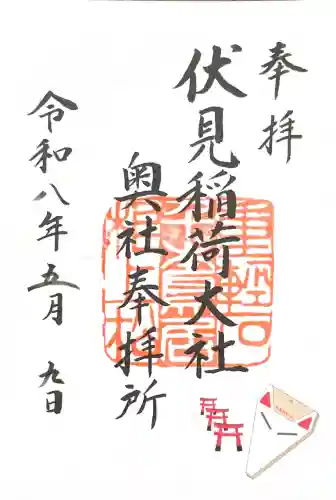 奉拝
伏見稲荷大社
奥社奉拝所
令和八年五月 九日